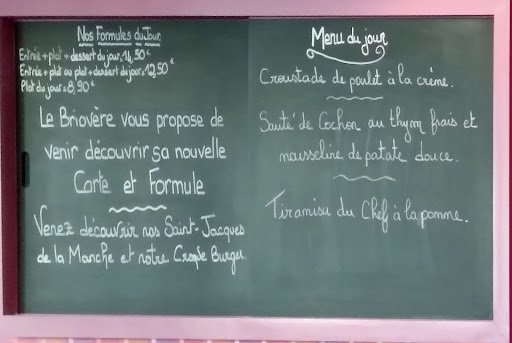 Nos Formules du Jour
Entrée + plat + dessert du jour = 14,50€
Entrée + plat ou plat + dessert du jour = 12,50€
Plat du jour = 8,90€
Le Briovère vous propose de
venir découvrir sa nouvelle
Carte et Formule
Venez découvrir nos Saint-Jacques
de la Manche et notre Burger.
Menu du jour
Croustade de poulet à la crème.
Sauté de Cochon au thym frais et
mousseline de patate douce.
Tiramisu du Chef à la pomme.